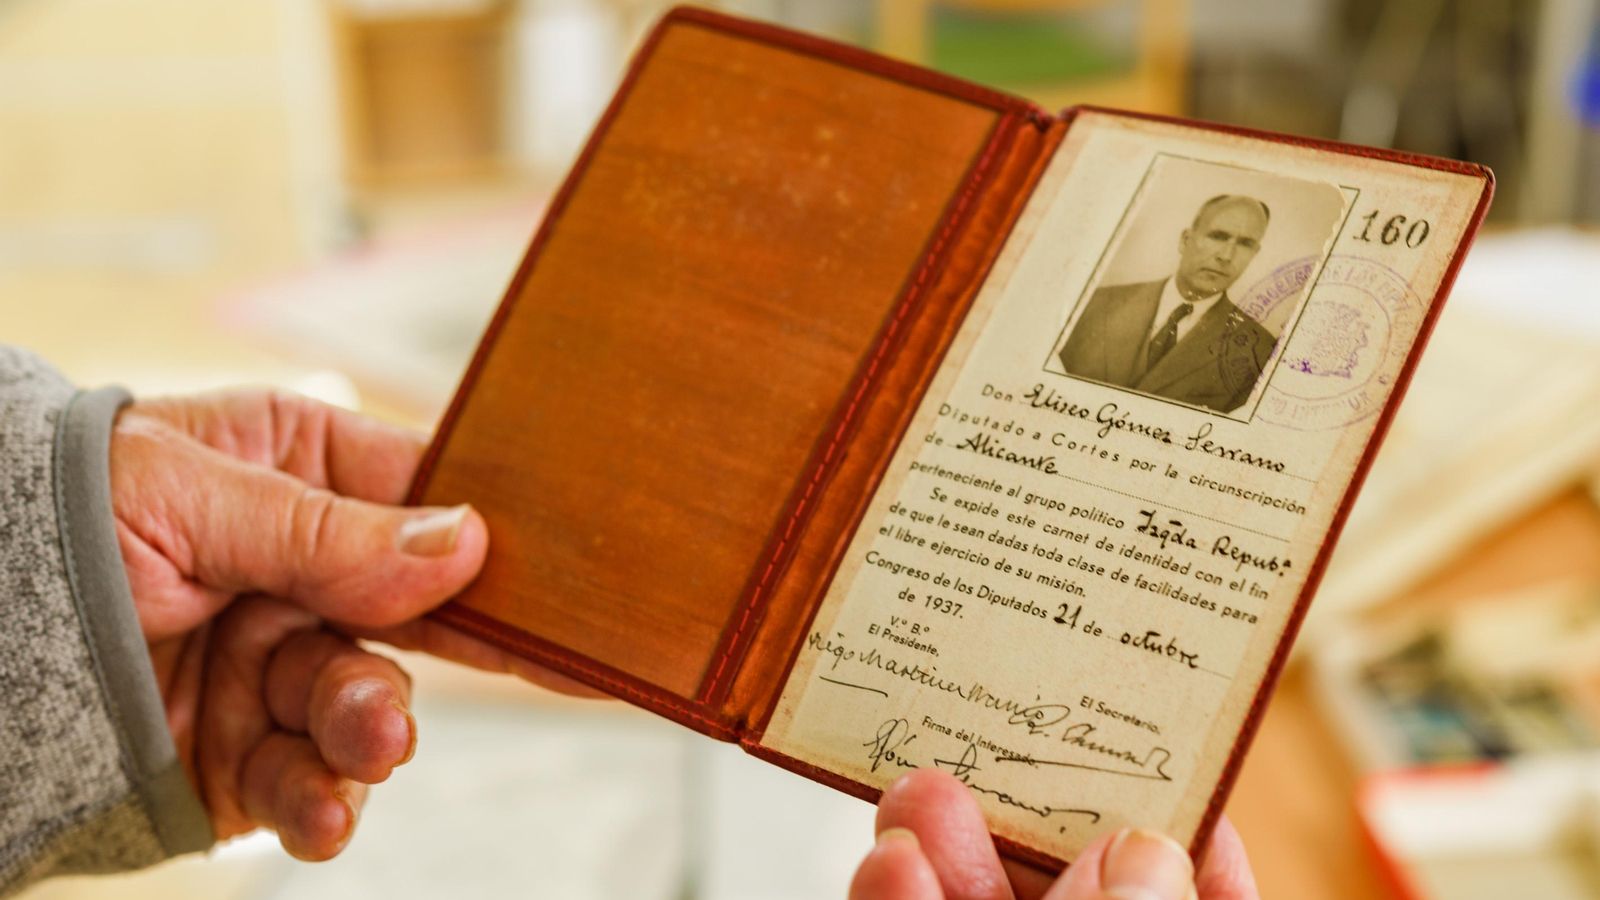 160
Don Eliseo Gómez Serrano
Diputado a Cortes por la circunscripción
de Alicante
perteneciente al grupo político Izqda Repub.ª
Se expide este carnet de identidad con el fin
de que le sean dadas toda clase de facilidades para
el libre ejercicio de su misión.
Congreso de los Diputados 21 de octubre
de 1937.
V.º B.º
El Presidente,
Diego Martinez Barrio
El Secretario,
Firma del Interesado.
Góm Serrano